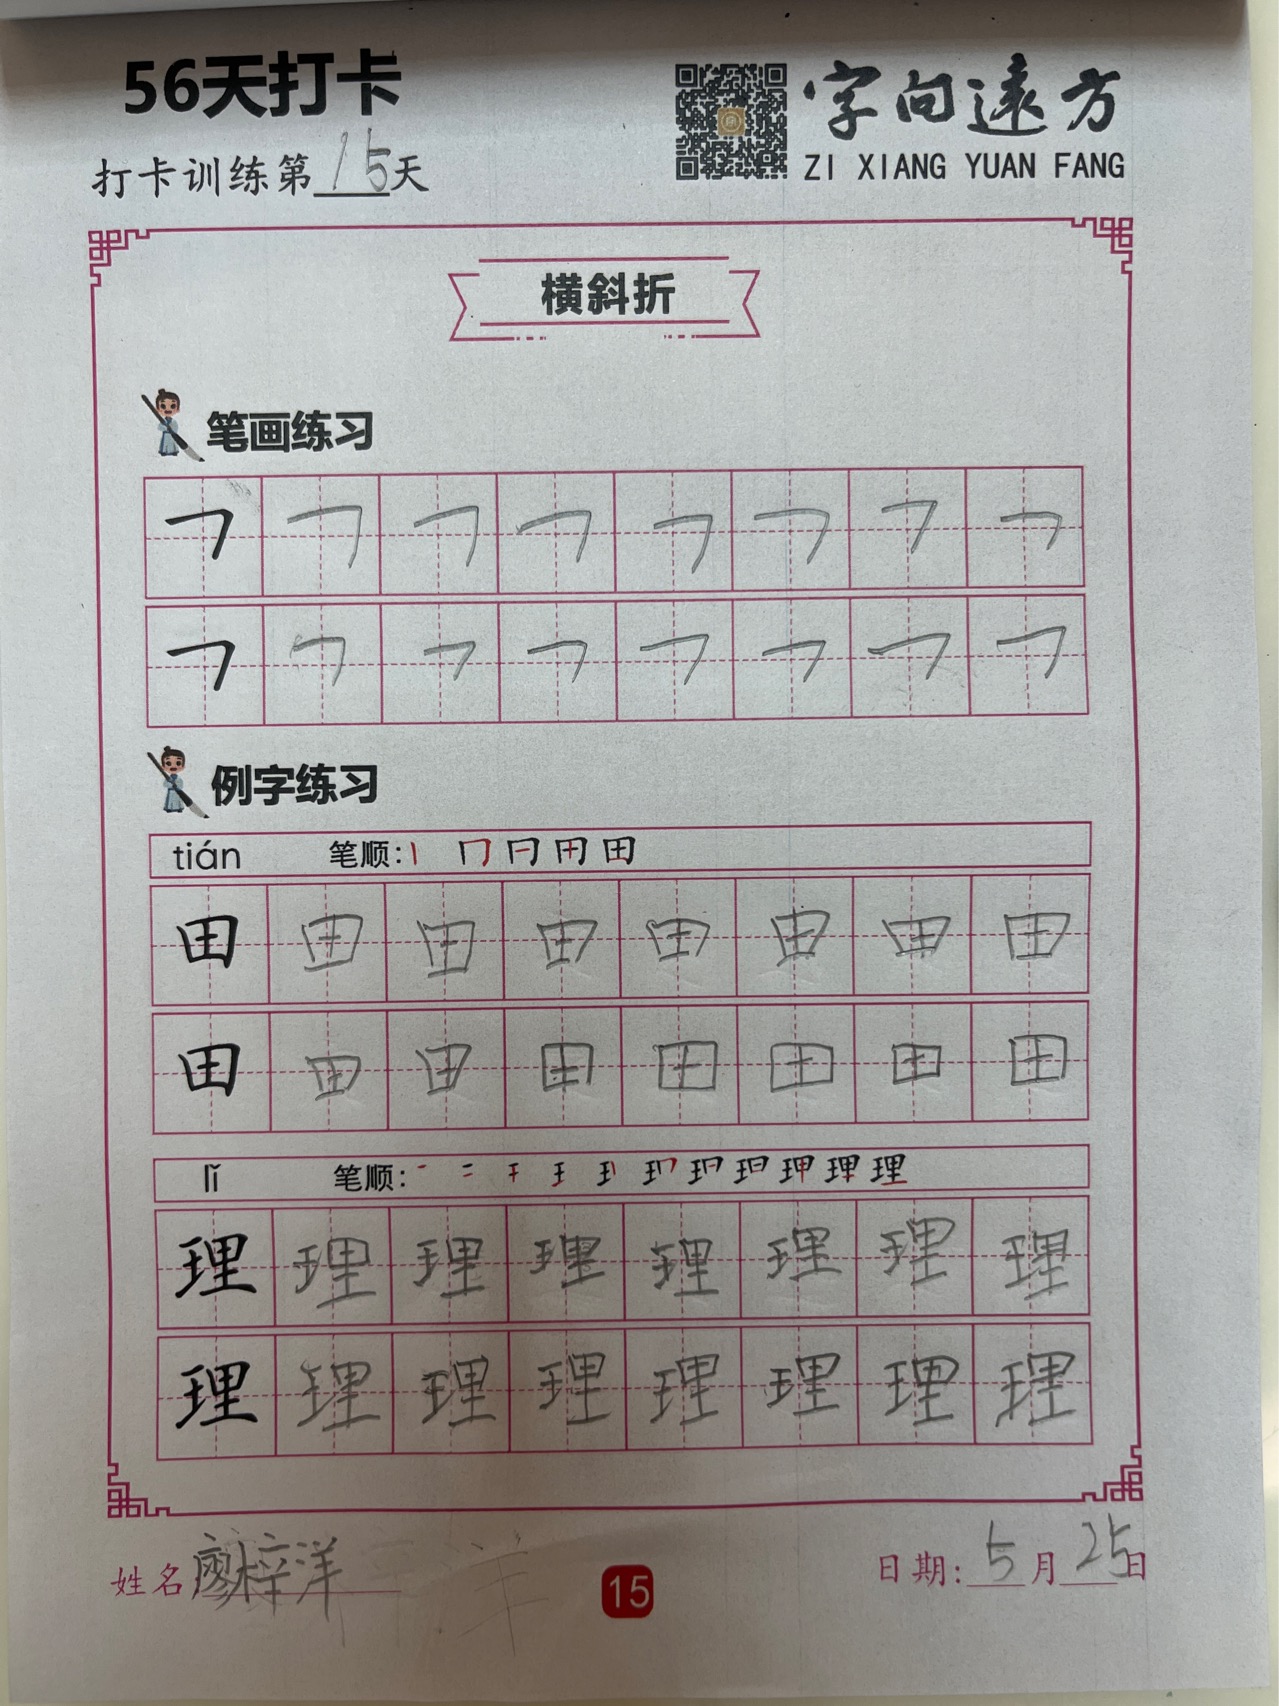 56天打卡
字向遠方
打卡训练第15天
ZI XIANG YUAN FANG
横斜折
笔画练习
㇕ ㇕ ㇕ ㇕ ㇕ ㇕ ㇕ ㇕
㇕ ㇕ ㇕ ㇕ ㇕ ㇕ ㇕ ㇕
例字练习
tián 笔顺:
田 田 田 田 田 田 田 田
田 田 田 田 田 田 田 田
lǐ 笔顺:
理 理 理 理 理 理 理 理
理 理 理 理 理 理 理 理
姓名廖梓洋 15 日期:5月25日